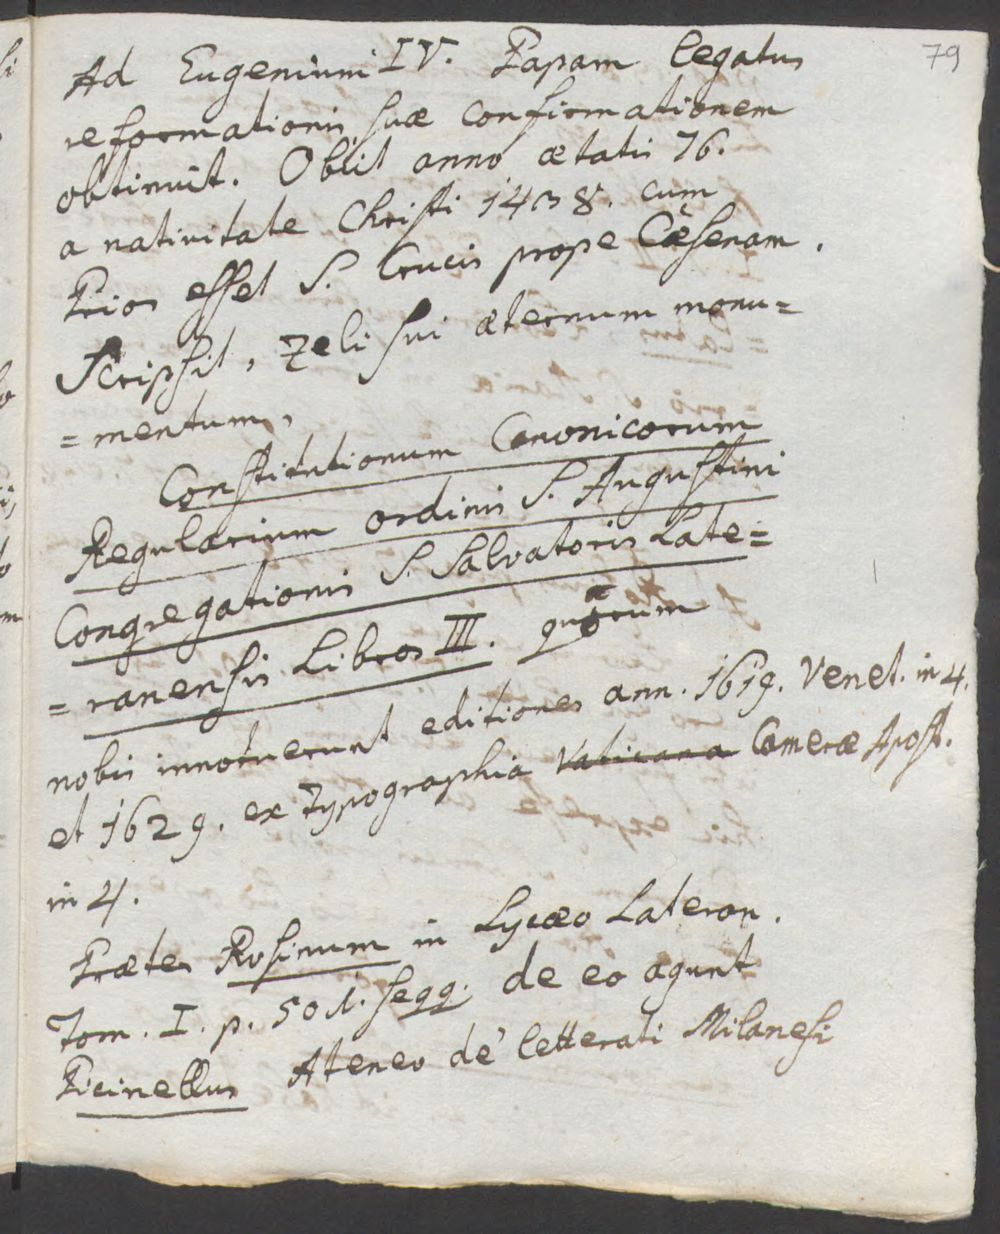 79
Ad Eugenium IV. Papam legatus
reformationis suæ confirmationem
obtinuit. Obiit anno ætatis 76.
a nativitate Christi 1438. cum
Prior esset S. Crucis prope Cæsenam.
Scripsit, zeli sui æternum monu=
=mentum,
Constitutionum Canonicorum
Regularium ordinis S. Augustini
Congregationis S. Salvatoris Late=
=ranensis Libros III. quorum
nobis innotuerunt editiones ann. 1619. Venet. in 4.
et 1629. ex Typographia Vaticana Cameræ Apost.
in 4.
Præter Rosinum in Lycæo Lateran.
Tom. I. p. 501. seqq. de eo agunt
Picinellus Ateneo de' letterati Milanesi